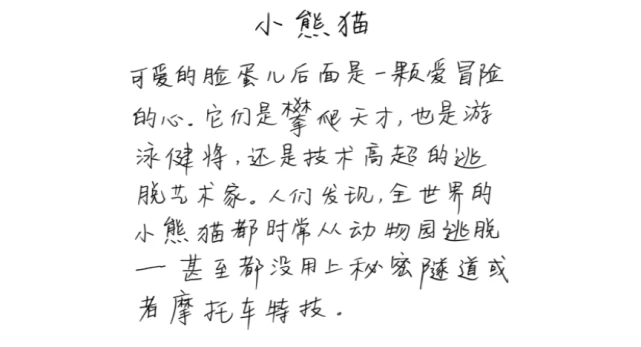 小熊猫
可爱的脸蛋儿后面是一颗爱冒险
的心。它们是攀爬天才,也是游
泳健将,还是技术高超的逃
脱艺术家。人们发现,全世界的
小熊猫都时常从动物园逃脱
一 甚至都没用上秘密隧道或
者摩托车特技。